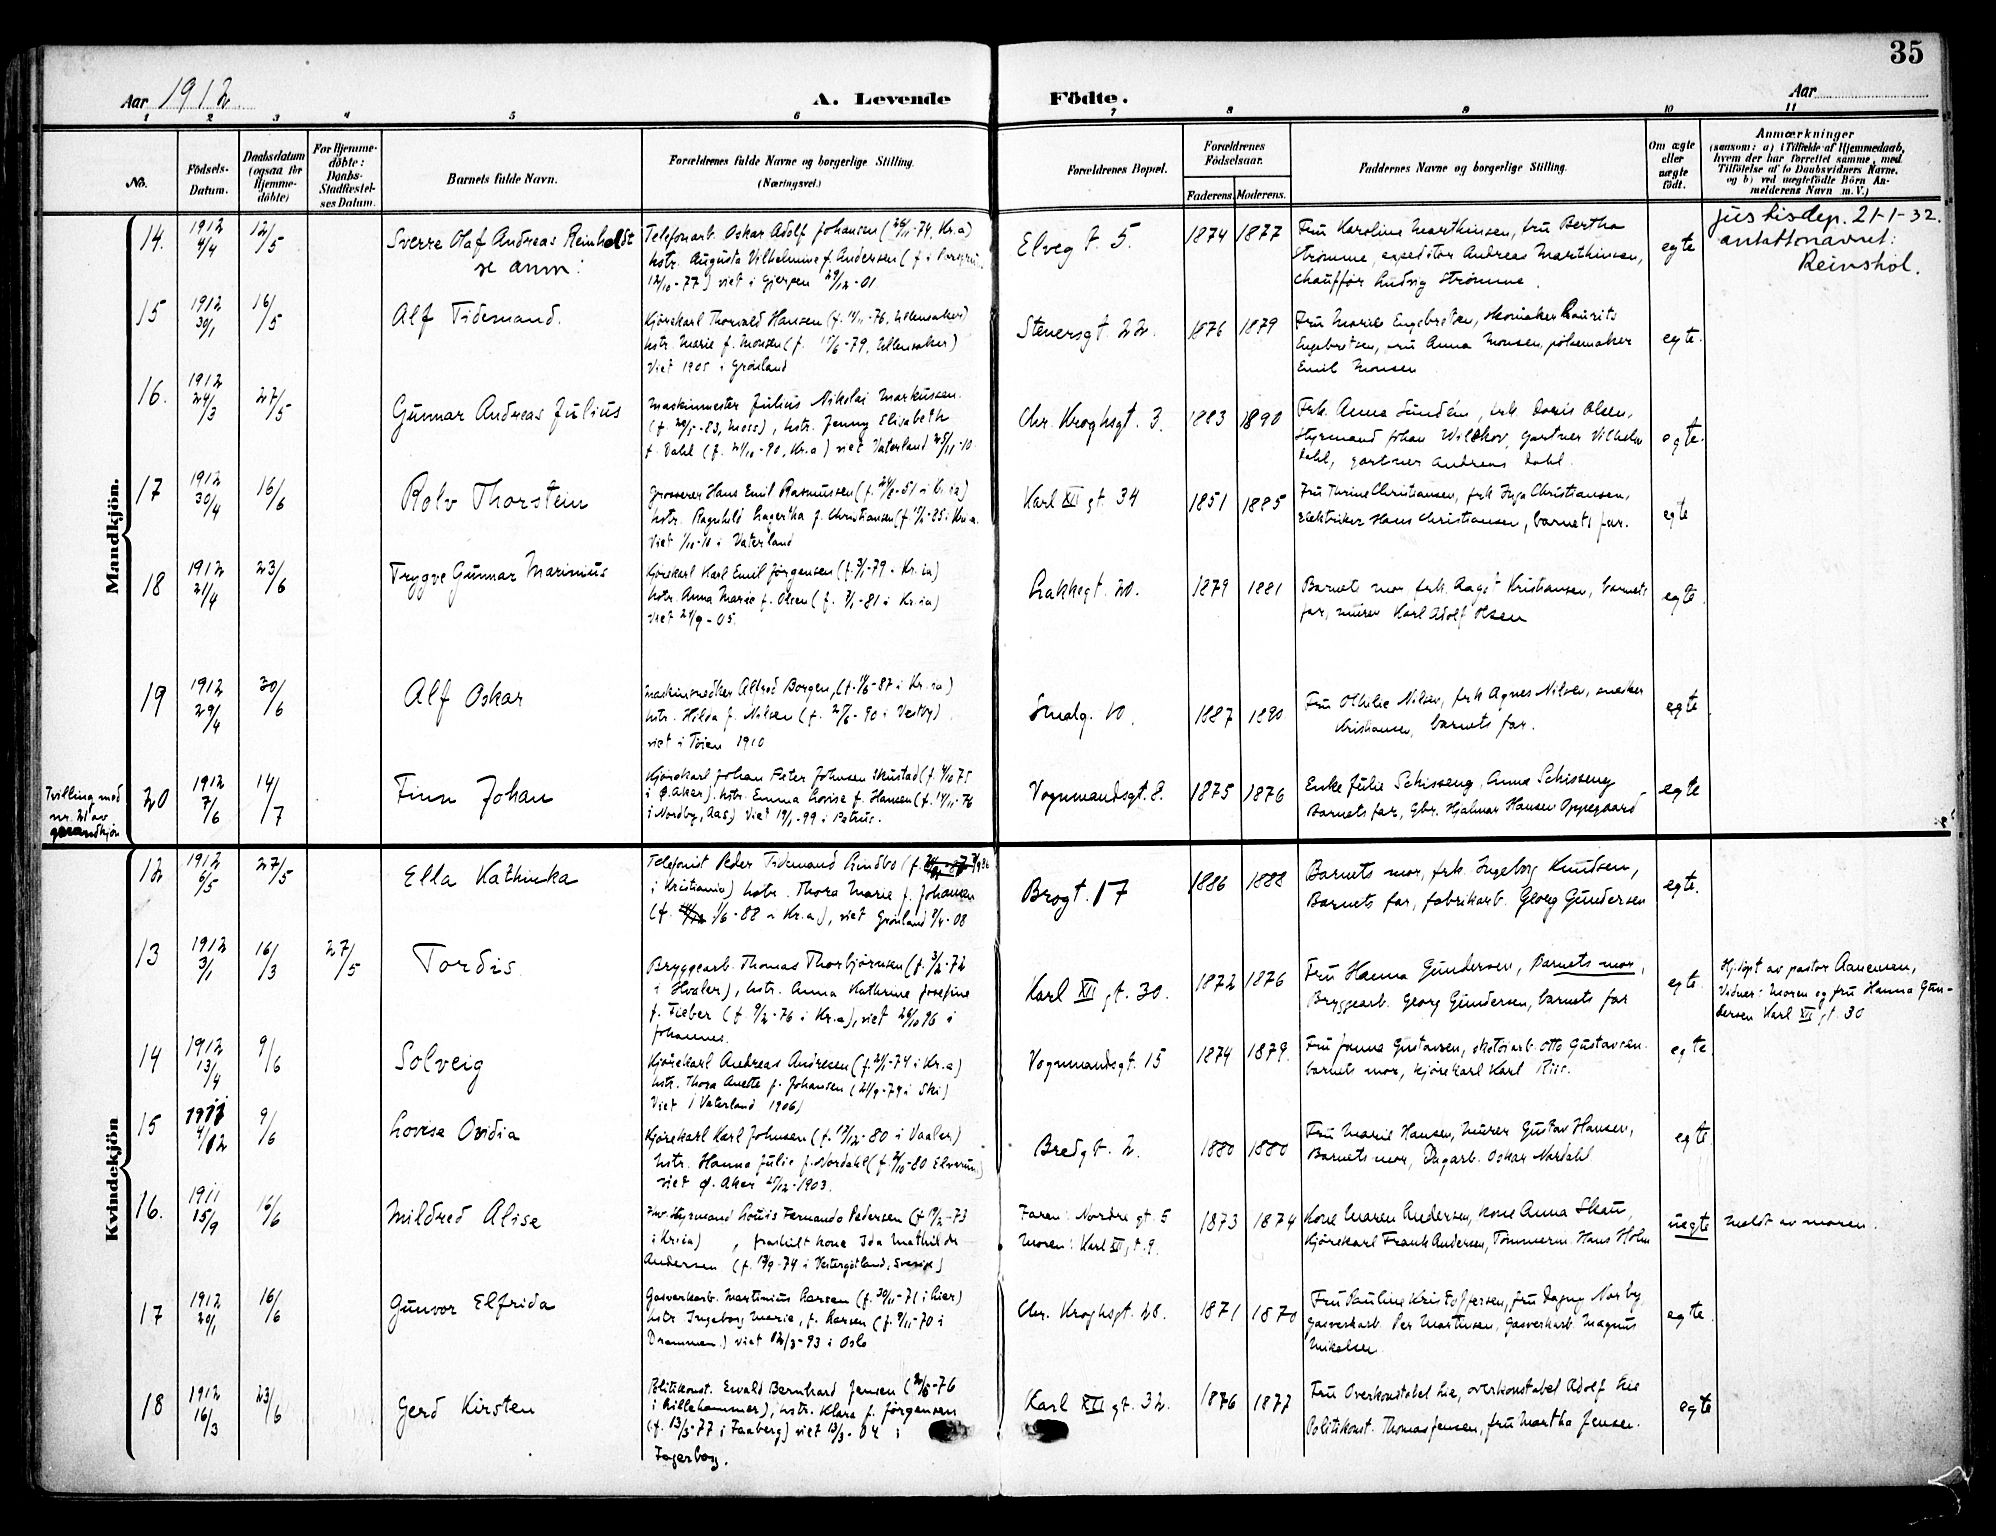 35
Aar 1912
A. Levende
Födte.
Aar
1 2 3 4 5 6 7 8 9 10 11
No.
Födsels-
Datum.
Daabsdatum
(ogsaa for
Hjemme-
döbte)
For Hjemme-
döbte:
Daabs-
Stadfæstel-
ses Datum.
Barnets fulde Navn.
Forældrenes fulde Navne og borgerlige Stilling.
(Næringsvei.)
Forældrenes Bopæl.
Forældrenes
Födselsaar.
Faderens. Moderens.
Faddernes Navne og borgerlige Stilling.
Om ægte
eller
uægte
födt.
Anmærkninger
(saasom: a) i Tilfælde af Hjemmedaab,
hvem der har forrettet samme, med
Tilföielse af to Daabsvidners Navne,
og b) ved uægtefödte Börn An-
melderens Navn m. V.)
Mandkjön.
14. 1912 4/4 12/5 Sverre Olaf Andreas Reinholdt
se anm:
Telefonarb. Oskar Adolf Johansen (26/11-74, Kr.a)
hstr. Augusta Vilhelmine f. Andersen (f i Porsgru.
12/10-77) viet i Gjerpen 29/12-01
Elveg t 5. 1874 1877
Fru Karoline Marthinsen, fru Bertha
Strømme, expeditør Andreas Marthinsen,
chauffør Ludvig Strømme.
egte
Justisdep. 21-1-32.
antattonavnet:
Reinshol.
15 1912 30/1 16/5 Alf Tidemand.
Kjørekarl Thorvald Hansen (f. 11/11-76, Ullensaker)
hstr. Marie f. Monsen (f. 17/6-79, Ullensaker)
Viet 1905 i Grønland
Stenersgt. 22. 1876 1879
Fru Marie Engebretsen, skomaker Laurits
Engebretsen, fru Anna Monsen, pølsemaker
Emil Monsen
egte.
16. 1912 24/3 27/5 Gunnar Andreas Julius
Maskinmester Julius Nikolai Markussen
(f. 20/5-83, Moss), hstr. Jenny Elisabeth
f. Dahl (f. 21/10-90, Kr.a) viet Vaterland 25/11-10
Chr. Kroghsgt. 3. 1883 1890
Frk. Anna Sundén, frk. Doris Olsen,
Styrmand Johan Wilskov, gartner Vilhelm
Dahl, gartner Andreas Dahl.
egte.
17 1912 30/4 16/6 Rolv Thorstein
Grosserer Hans Emil Rasmussen (f. 24/8-51 i Kr.ia)
hstr. Ragnhild Lagertha f. Christiansen (f 11/2-85 i Kr.a.
Viet 1/10-10 i Vaterland
Karl XII gt 34 1851 1885
Fru Thrine Christiansen, frk Inga Christiansen,
Elektriker Hans Christiansen, barnets far.
egte
18 1912 21/4 23/6 Trygve Gunnar Marinius
Kjørekarl Karl Emil Jørgensen (f. 3/1-79 - Kr.ia)
hstr. Anna Marie f. Olsen (f. 7/1-81 i Kr.ia)
viet 24/9-05.
Lakkegt. 20. 1879 1881
Barnets mor frk. Aagot Kristiansen, barnets
far, murer Karl Adolf Olsen
egte.
19 1912 29/4 30/6 Alf Oskar
Maskinsnedker Alfred Borgen, (f. 1/6-87 i Kr.ia)
hstr. Hilda f. Nilsen (f. 27/6-90 i Vestby)
viet i Tøien 1910
Smalg. 10. 1887 1890
Fru Othilie Nilsen, frk Agnes Nilsen, snekker
Kristiansen, barnets far.
egte
Tvilling med
nr. 21 av
20 1912 7/6 14/7 Finn Johan
Kjørekarl Johan Peter Johnsen Skustad (f. 4/10 75
i Ø. Aker). hstr. Emma Lovise f. Hansen (f. 14/11-76
i Nordby, Aas) Viet 19/1-99 i Petrus.
Vognmandsgt. 8. 1875 1876
Enke Julie Schisseng Anna Schisseng
Barnets far, Gbr. Hjalmar Hansen Oppegaard
egte
Kvindekjön
12 1912 6/5 27/5 Ella Kathinka
Telefonist Peder Tidemand Lindbo (f.
i Kristiania) hstr. Thora Marie f. Johansen
(f. 1/6-88 i Kr.a), viet Grønland 7/4-08
Brogt. 17 1886 1888
Barnets mor, frk. Ingeborg Knudsen,
Barnets far, fabrikarb. Georg Gundersen
egte.
13 1912 3/1 16/3 27/5 Tordis
Bryggearb. Thomas Thorbjørnsen (f. 3/2-72
i Hvaler), hstr. Anna Kathrine Josefine
f. Fieber (f 9/2-76 i Kr.a), viet 26/10 96 i
Johannes.
Karl XII gt. 30. 1872 1876
Fru Hanna Gundersen, Barnets mor,
Bryggearb. Georg Gundersen, barnets far
egte.
Hj.døpt av pastor Aanensen,
Vidner: Moren og fru Hanna Gun-
dersen Karl XII gt. 30
14 1912 13/4 9/6 Solveig
Kjørekarl Andreas Andresen (f. 21/1-74 i Kr.a)
hstr. Thora Anette f. Johansen (21/9-79 i Ski)
Viet i Vaterland 1906)
Vognmandsgt. 15 1874 1879.
Fru Janna Gustavsen, skotøiarb. Otto Gustavsen.
barnets mor, kjørekarl Karl Riis.
egte.
15 1911 4/12 9/6 Lovise Ovidia
Kjørekarl Karl Johnsen (f. 17/12-80 i Vaaler)
hstr. Hanna Julie f. Nordahl (f. 8/10-80 Elverum)
viet Ø. Aker 25/12-1903.
Bredgt. 2. 1880 1880
Fru Marie Hansen, Murer Gustav Hansen,
Barnets mor, Dagarb. Oskar Nordahl
egte.
16. 1911 15/9 16/6 Mildred Alise
Fhv. Styrmand Louis Fernando Pedersen (f 19/2-73
i Kr.ia), fraskilt kone Ida Mathilde
Andersen (f. 17/9-74 i Vestergötland, Sverige)
Faren: Nordre gt. 5
Moren: Karl XII gt. 9.
1873 1874
Kone Maren Andersen, kone Anna Skau,
Kjørekarl Frank Andersen, Tømmerm. Hans Holm
uegte
Meldt av moren.
17 1912 20/1 16/6 Gunvor Elfrida
Gasverkarb. Martinius Larsen (f. 30/11-71 i Lier)
hstr Ingeborg Marie, f. Larsen (f. 9/11-70 i
Drammen.) viet 12/3-93 i Oslo
Chr. Kroghsgt. 28. 1871 1870
Fru Pauline Kristoffersen, fru Dagny Norby,
Gasverkarb. Per Martinsen, Gasverkarb. Magnus
Mikalsen.
egte.
18 1912 16/3 23/6 Gerd Kirsten
Politikonst. Ewald Bernhard Jensen (21/6-76
i Lillehammer), hstr. Klara f. Jørgensen
(f. 13/5-77 i Faaberg) viet 13/3-04 i
Fagerborg.
Karl XII gt. 32. 1876 1877
Fru Overkonstabel Lie, overkonstabel Adolf Lie
Politikonst. Thomas Jensen, fru Martha Jensen.
egte